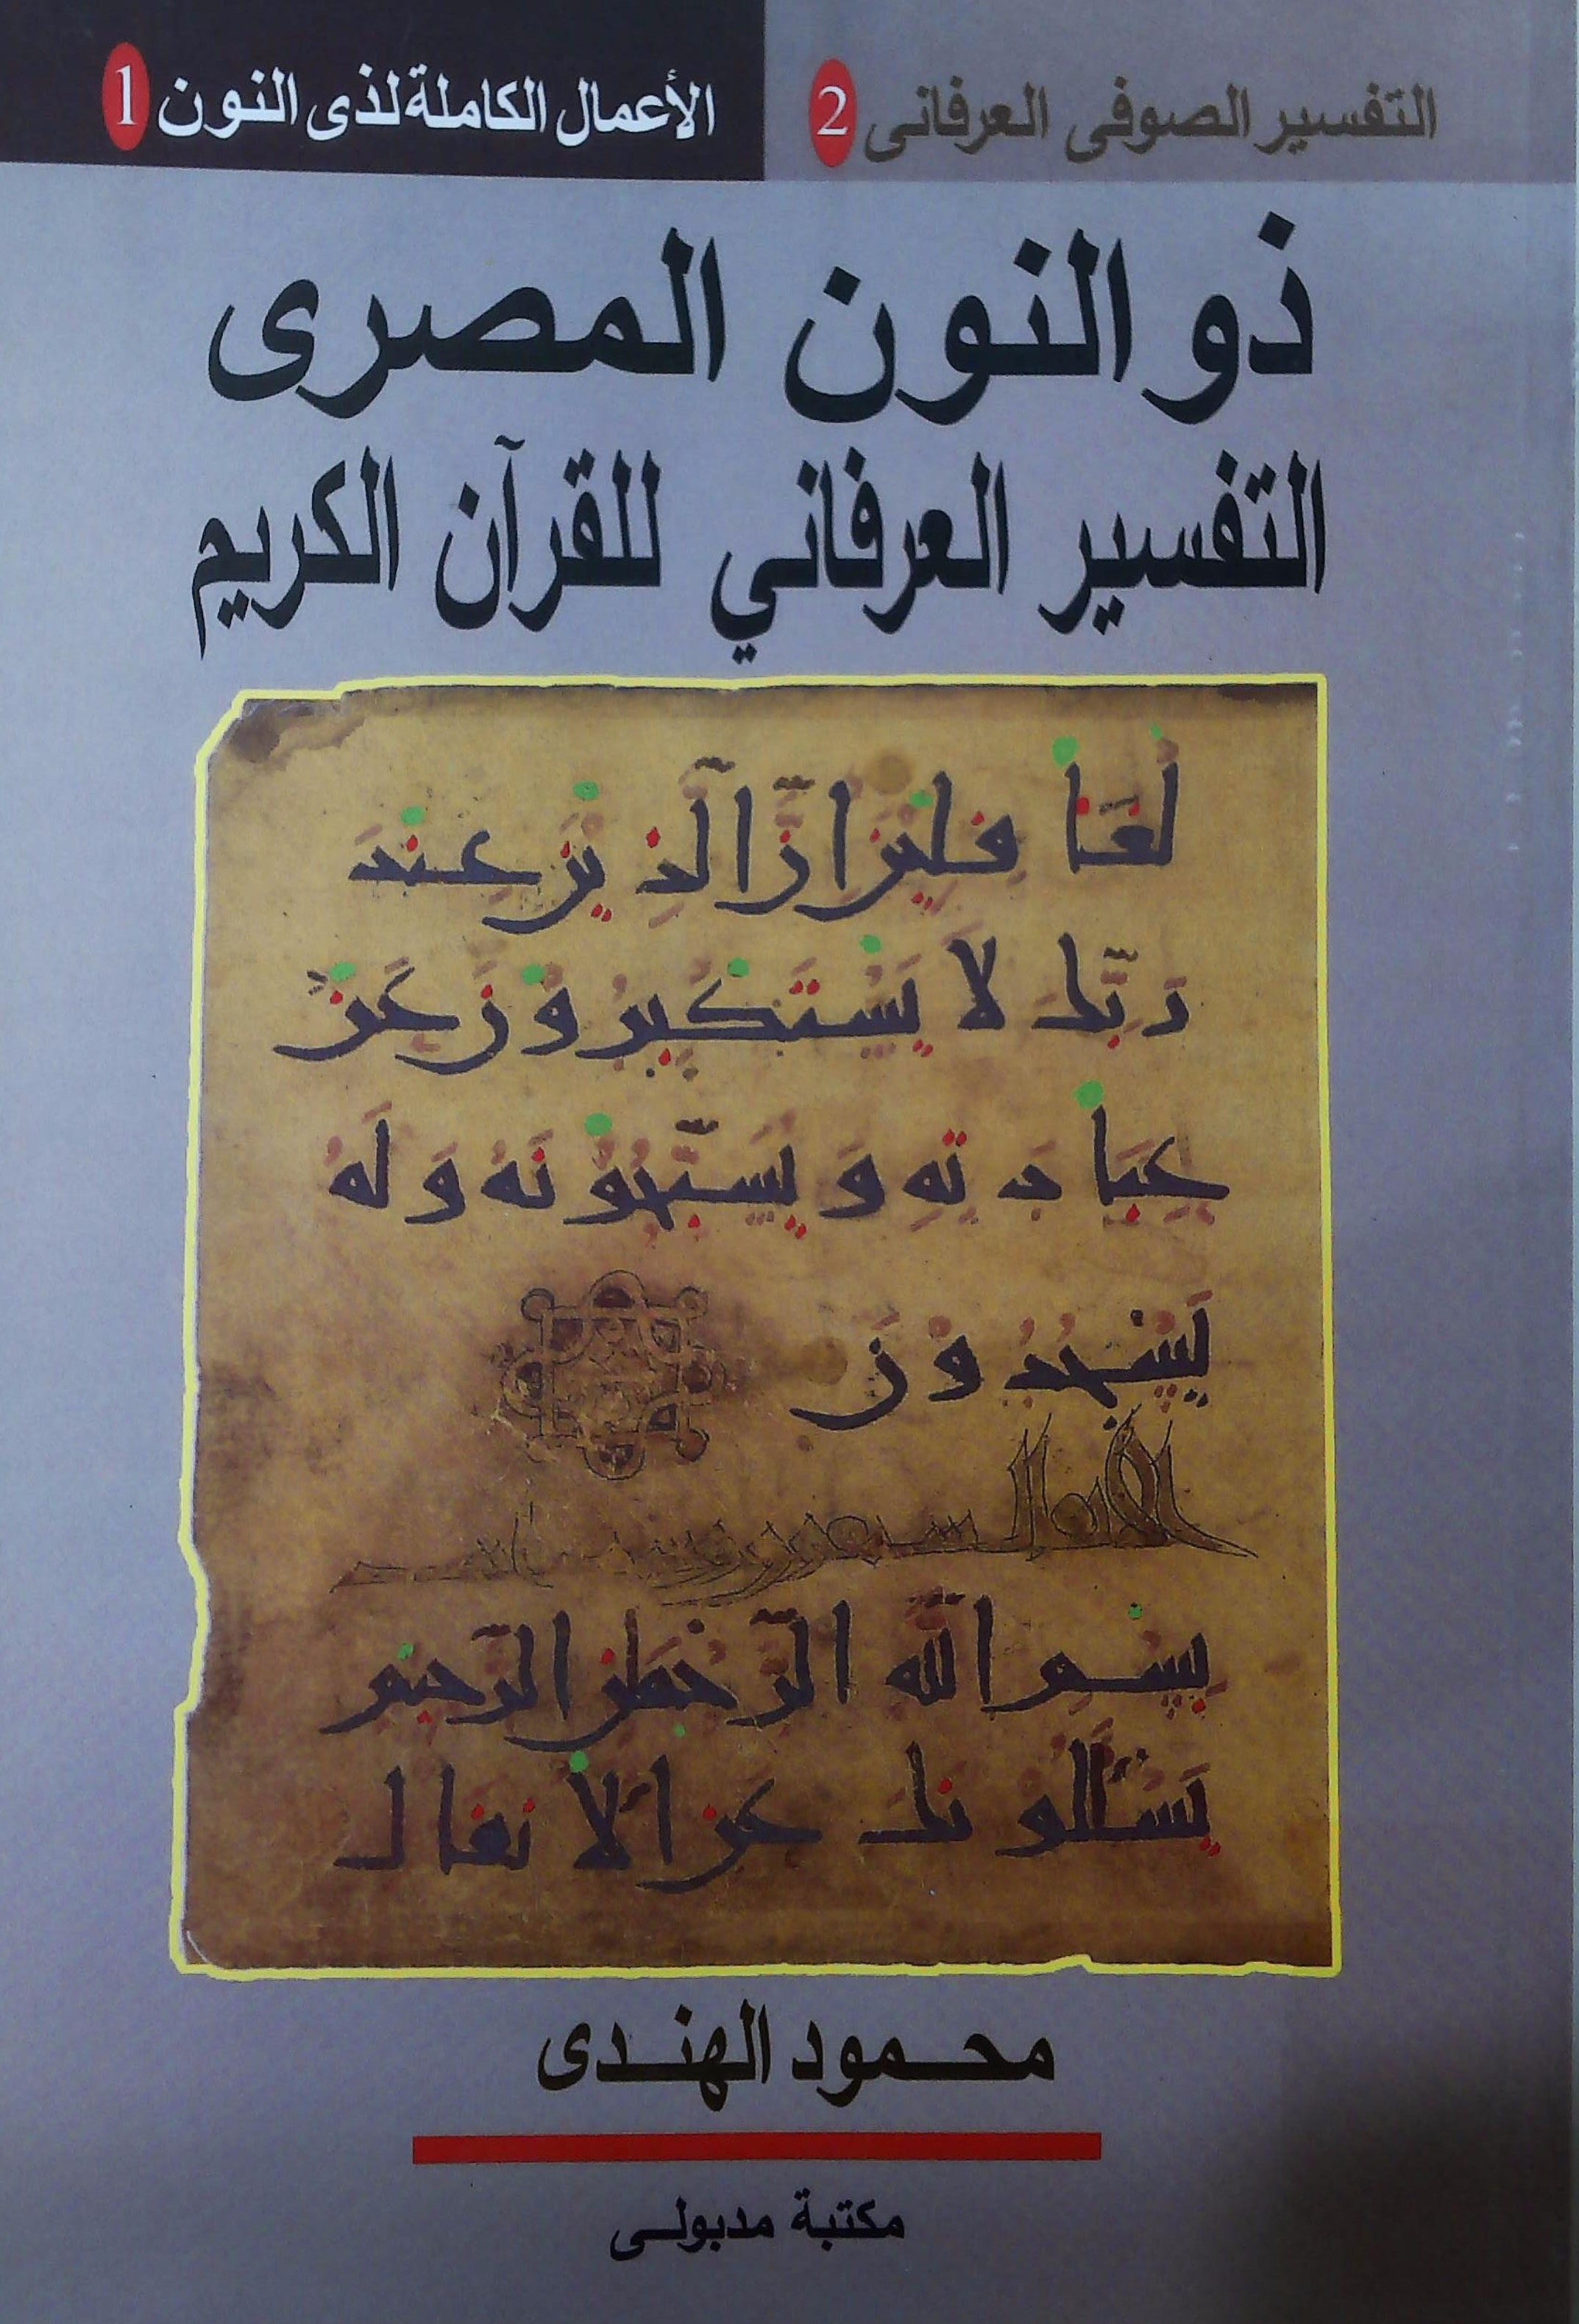 التفسير الصوفى العرفانى 2
الأعمال الكاملة لذى النون 1
ذو النون المصرى
التفسير العرفاني للقرآن الكريم
لغَا فِلِيْزَ اِنَّ الَّذِيْنَ عِنْدَ
رَبِّكَ لَا يَسْتَكْبِرُوْنَ عَنْ
عِبَادَتِهِ وَيُسَبِّحُوْنَهُ وَلَهُ
يَسْجُدُوْنَ
بِسْمِ اللّٰهِ الرَّحْمٰنِ الرَّحِيْمِ
يَسْـَٔلُوْنَكَ عَنِ الْاَنْفَالِ
محمود الهندى
مكتبة مدبولى